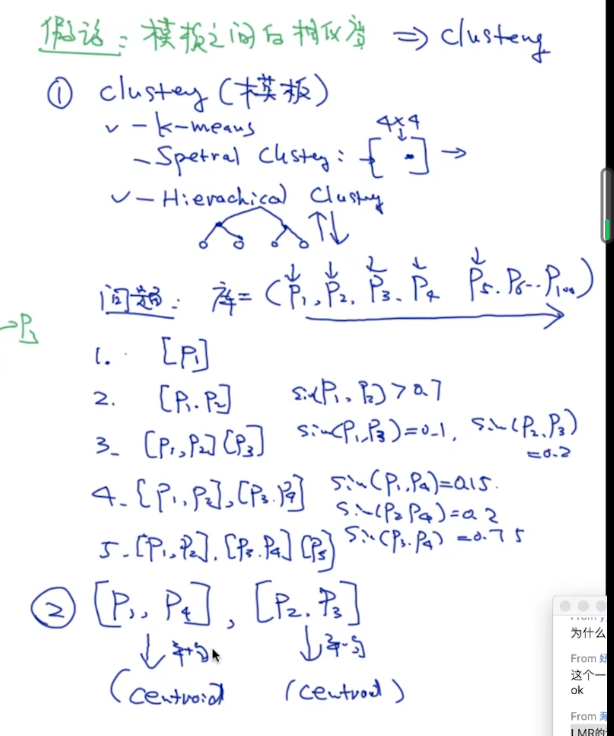 假设：模板之间的相似度 ⇒ clusteng
① clustey (模板)
✓ - k-means
4×4
- Spetral Clstey : → [ ] →
✓ - Hierachical Clustey
问题： 库= (P1, P2, P3, P4 P5, P6 -- P100)
→ P1
1. [P1]
2. [P1, P2] sim(P1, P2) > 0.7
3- [P1, P2] [P3] sim(P1, P3) = 0.1, sim(P2, P3) = 0.2
4- [P1, P2], [P3, P4] sim(P1, P4) = 0.15.
sim(P2 P4) = 0.2
5- [P1, P2], [P3, P4] [P5] sim(P3, P4) = 0.75
② [P1, P4] , [P2, P3]
↓ 平均 ↓ 平均
(centroid (centrod)
为什么
From 好
这个一
ok
From 海
LMR的